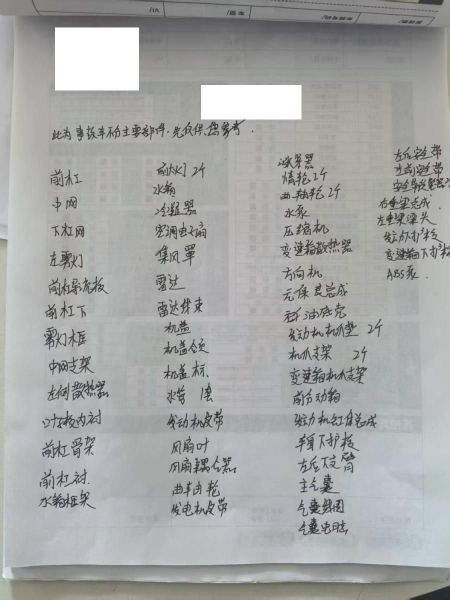 此为事故车不分主要部件,先放供您参考.
前杠
中网
下杠网
左雾灯
前杠导流板
前杠下
雾灯框
中网支架
左侧散热器
叶子板内衬
前杠骨架
前杠衬
水箱框架
前大灯2个
水箱
冷凝器
空调电子扇
集风罩
雷达
雷达线束
机盖
机盖锁
机盖标
水管
发动机皮带
风扇叶
风扇耦合器
曲轴轮
发电机皮带
涨紧器
惰轮2个
曲轴轮2个
水泵
压缩机
变速箱散热器
方向机
元保总成
机油底壳
发动机机爪垫 2个
机爪支架 2个
变速箱机爪支架
成分动箱
发动机缸体总成
车身下护板
左后下支臂
主气囊
气囊线圈
气囊电脑
左后安全带
左前安全带
右重梁总成
左重梁梁头
发动机下护板
变速箱下护板
ABS泵